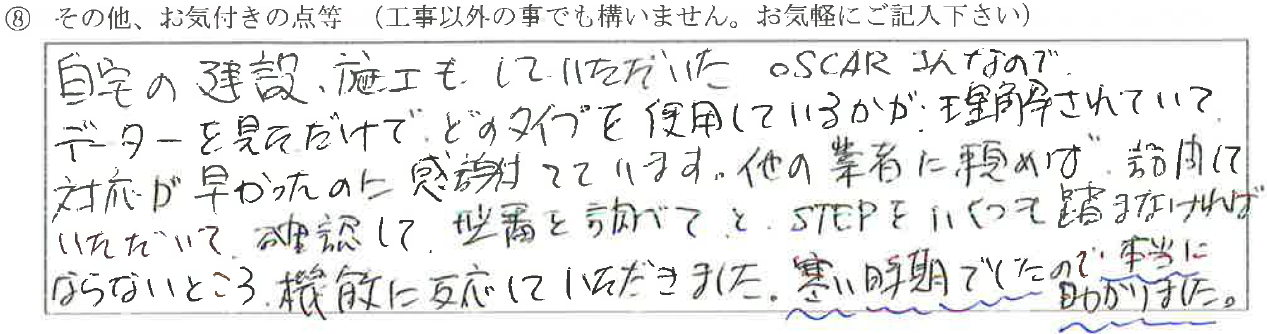 ⑧ その他、お気付きの点等 （工事以外の事でも構いません。お気軽にご記入下さい）
自宅の建設、施工も していただいた OSCAR さんなので、
データーを見ただけで、どのタイプを使用しているかが、理解されていて
対応が早かったのに感謝してています。他の業者に頼めば、訪問して
いただいて、確認して、型番を調べてと、STEPをいくつも踏まなければ
ならないところ、機敏に反応していただきました。寒い時期でしたので、本当に
助かりました。